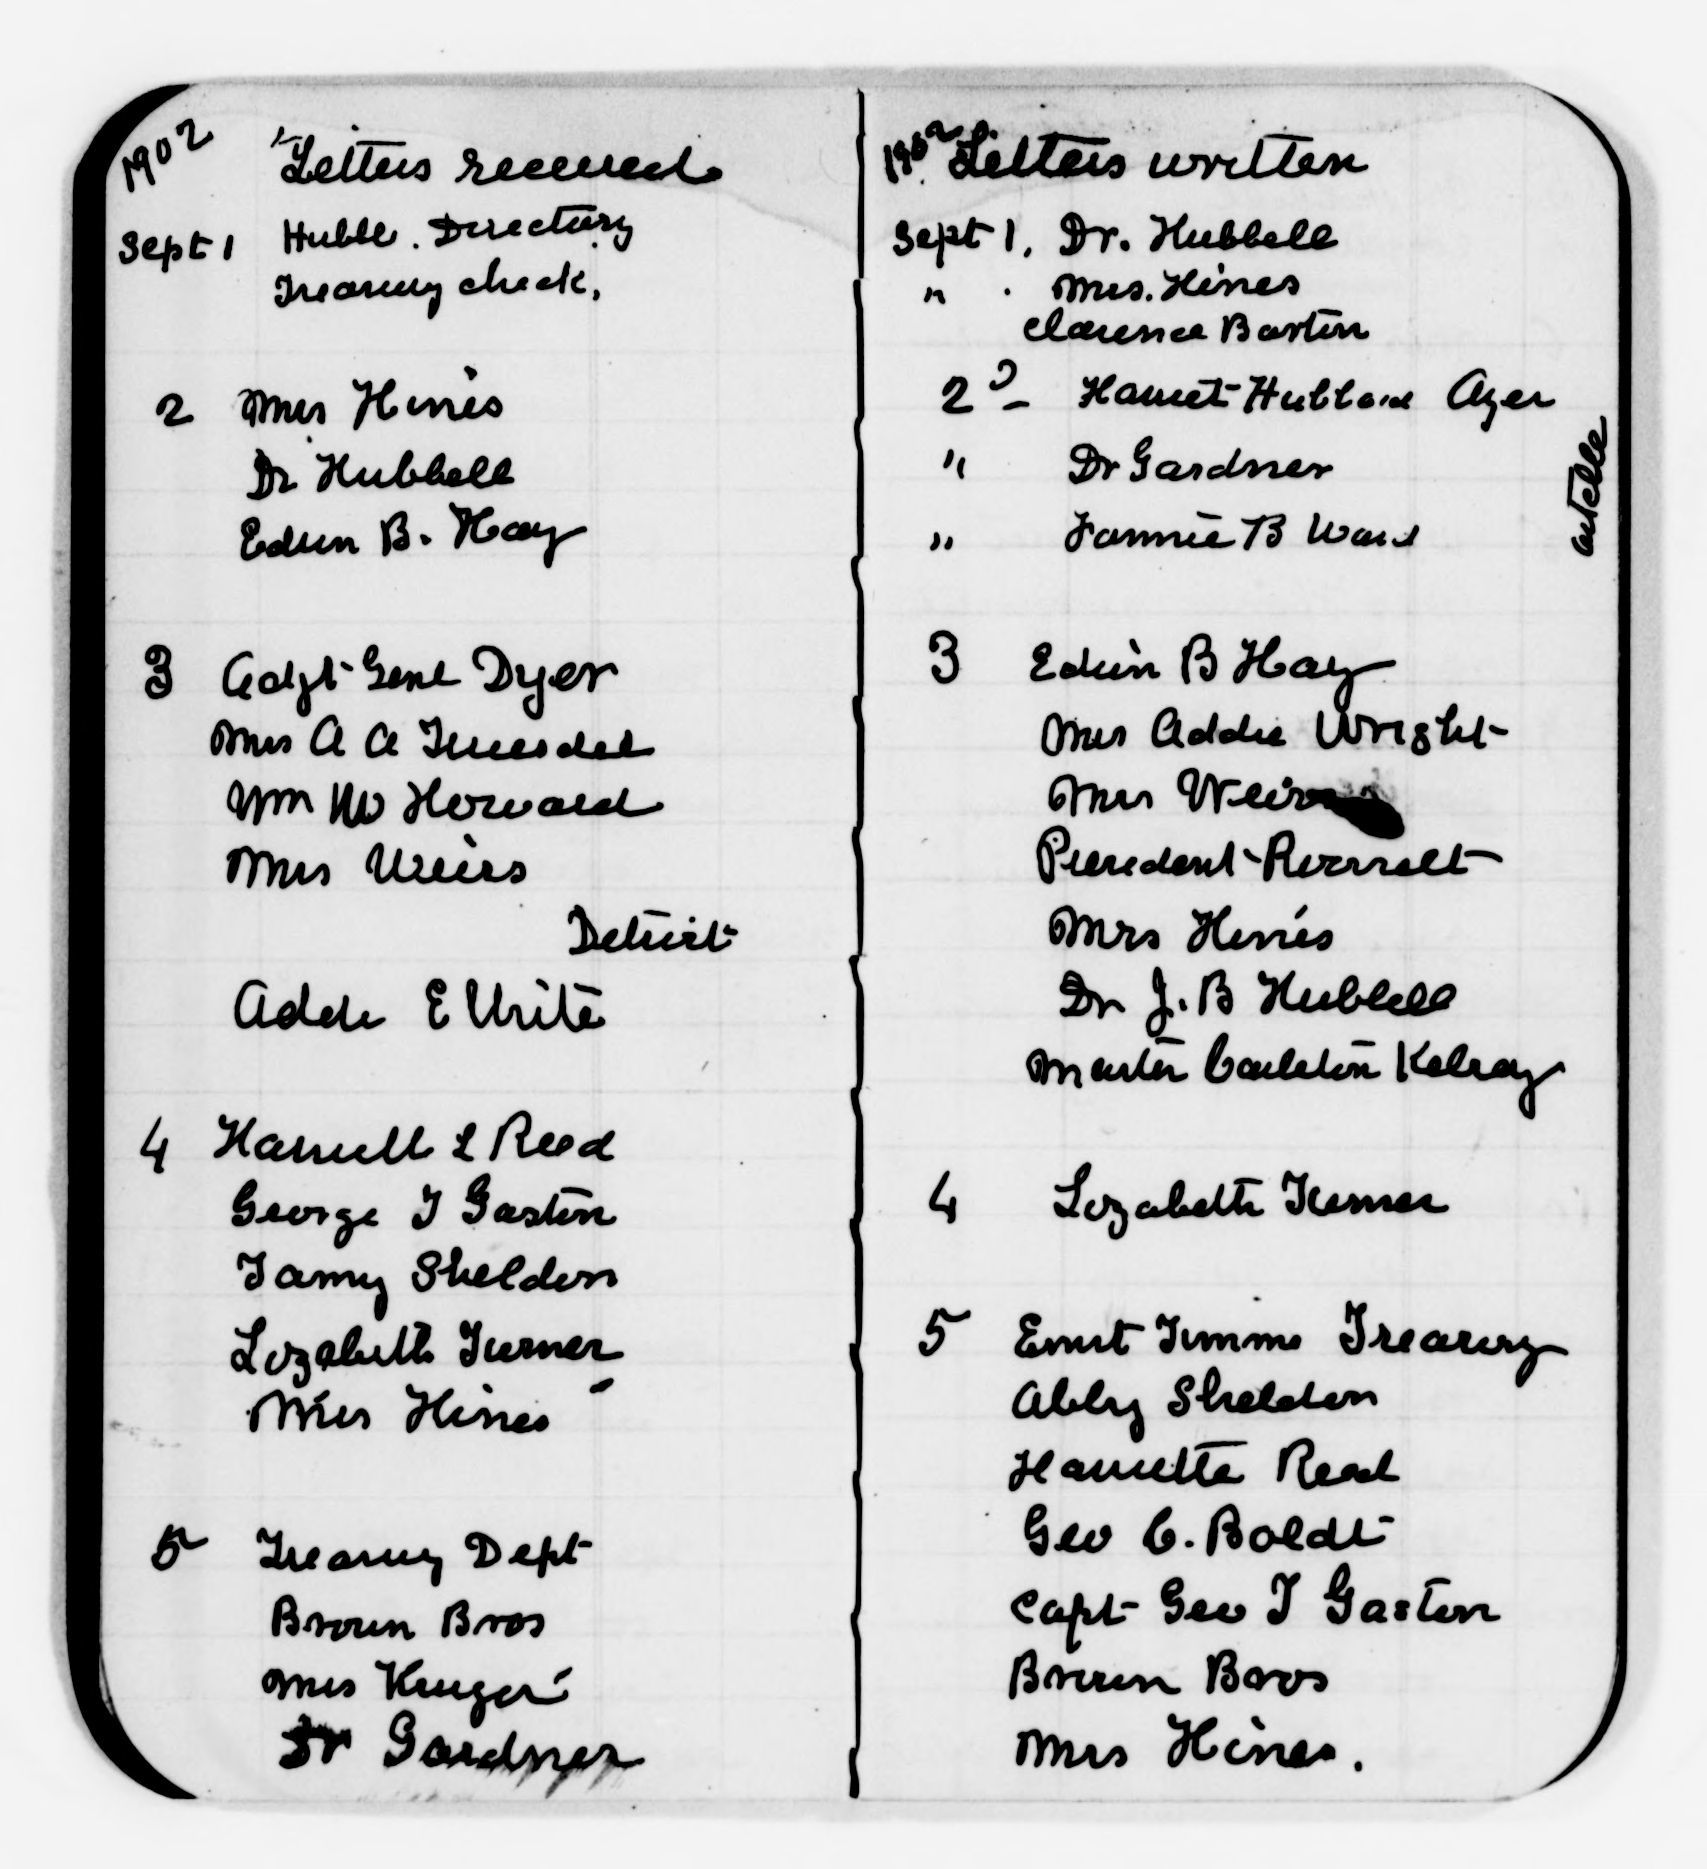 1902 Letters received
Sept 1 Hubbl. Directory
Treasury check.
2 Mrs Hines
Dr Hubbell
Edwin B. Hay
3 Adjt Genl Dyer
Mrs A A Truesdel
Wm W Howard
Mrs Weirs
Detroit
Adde E Write
4 Harriett L Reed
George T Gaston
Fanny Sheldon
Lizabeth Turner
Mrs Hines
5 Treasury Dept
Brown Bros
Mrs Kruger
Dr Gardner
1902 Letters written
Sept 1. Dr. Hubbell
" Mrs. Hines
Clarence Barton
2 Harriet Hubbard Ayer
" Dr Gardner
" Fannie B Ward
3 Edwin B Hay
Mrs Addie Wright
Mrs Weirs
President Roosevelt
Mrs Hines
Dr J. B Hubbell
Master Carleton Kelsey
4 Lizabeth Turner
5 Ernst Timme Treasury
Abby Sheldon
Harriette Reed
Geo C. Boldt
Capt Geo T Gaston
Brown Bros
Mrs Hines.